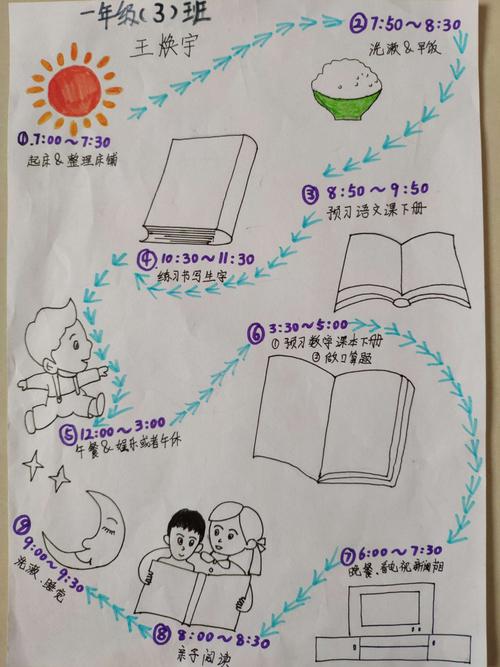 一年级(3)班
王焕宇
① 7:00～7:30
起床&整理床铺
② 7:50～8:30
洗漱&早饭
③ 8:50～9:50
预习语文课下册
④ 10:30～11:30
练习书写生字
⑤ 12:00～3:00
午餐&娱乐或者午休
⑥ 3:30～5:00
① 预习数学课本下册
② 做口算题
⑦ 6:00～7:30
晚餐、看电视新闻
⑧ 8:00～8:30
亲子阅读
⑨ 9:00～9:30
洗漱、睡觉